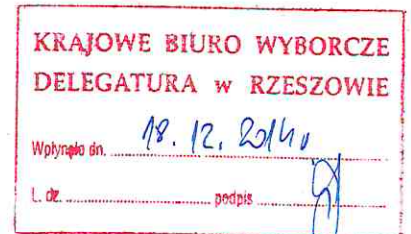 KRAJOWE BIURO WYBORCZE
DELEGATURA w RZESZOWIE
Wpłynęło dn. 18. 12. 2014r
L. dz. .................... podpis ....................